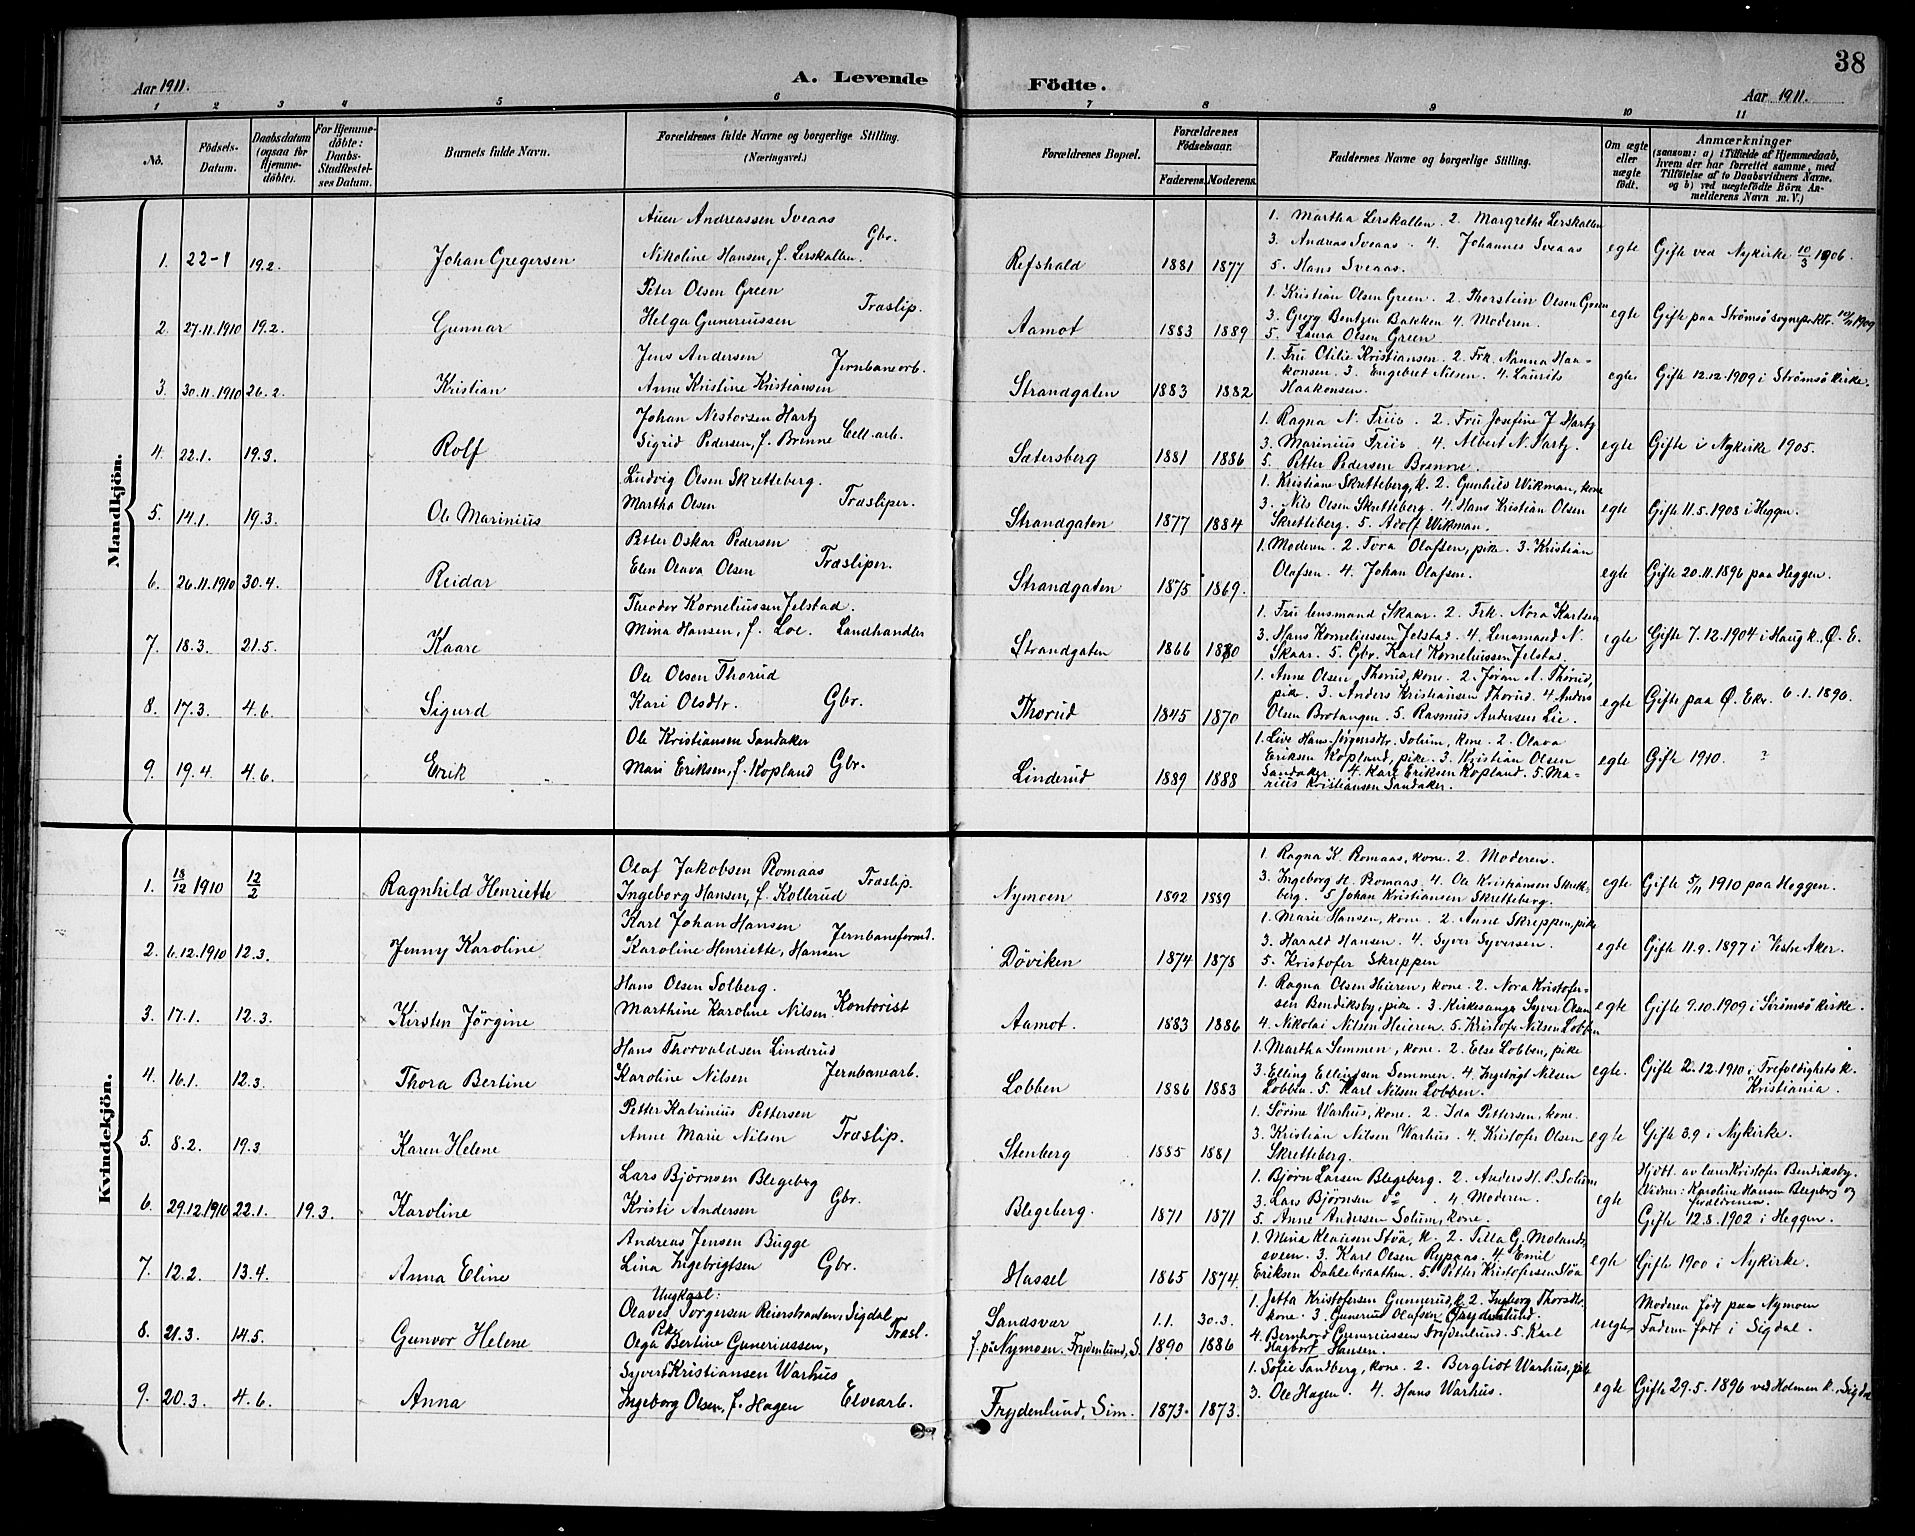 38
Aar 1911.
A. Levende Födte.
Aar 1911.
1 2 3 4 5 6 7 8 9 10 11
No.
Födsels-Datum.
Daabsdatum (ogsaa for Hjemme-døbte).
For Hjemme-døbte: Daabs-Stadfæstel-ses Datum.
Barnets fulde Navn.
Forældrenes fulde Navne og borgerlige Stilling. (Næringsvei.)
Forældrenes Bopæl.
Forældrenes Fødselsaar.
Faderens. Moderens.
Faddernes Navne og borgerlige Stilling.
Om ægte eller uægte født.
Anmærkninger
(saasom: a) i Tilfælde af Hjemmedaab, hvem der har forrettet samme, med Tilføielse af to Daabsvidners Navne. og b) ved uægtefødte Börn An-melderens Navn m. V.)
Mandkjön.
1. 22-1 19.2. Johan Gregersen
Auen Andreassen Sveaas Gbr.
Nikoline Hansen, f. Lerskallen.
Refshald 1881 1877
1. Martha Lerskallen 2. Margrethe Lerskallen
3. Andreas Sveaas. 4. Johannes Sveaas
5. Hans Sveaas.
egte Gifte ved Nykirke 10/3 1906.
2. 27.11.1910 19.2. Gunnar
Peter Olsen Green Træslip.
Helga Guneriussen
Aamot 1883 1889
1. Kristian Olsen Green. 2. Thorstein Olsen Green
3. Georg Bentzen Bakken 4. Moderen.
5. Laura Olsen Green
egte Gifte paa Strømsø sognepr.ktr. 1909
3. 30.11.1910 26.2. Kristian
Jens Andersen Jernbanearb.
Anne Kristine Kristiansen
Strandgaten 1883 1882
1. Fru Otilie Kristiansen. 2. Frk. Nanna Haa-
konsen. 3. Engebret Nilsen. 4. Laurits
Haakonsen.
egte Gifte 12.12.1909 i Strømsø kirke.
4. 22.1. 19.3. Rolf
Johan Nestorsen Hartz
Sigrid Pedersen, f. Brenne Cell.arb.
Sætersberg 1881 1886
1. Ragna N. Friis. 2. Fru Josefine J Hartz
3. Marinius Friis. 4. Albert N. Hartz.
5. Petter Pedersen Brenne.
egte Gifte i Nykirke 1905.
5. 14.1. 19.3. Ole Marinius
Ludvig Olsen Skretteberg.
Martha Olsen Træsliper.
Strandgaten 1877 1884
1. Kristiane Skretteberg, k. 2. Gunhild Wikman, kone
3. Nils Olsen Skretteberg. 4. Hans Kristian Olsen
Skretteberg. 5. Adolf Wikman.
egte Gifte 11.5.1903 i Heggen.
6. 26.11.1910 30.4. Reidar
Petter Oskar Pedersen
Elen Olava Olsen Træsliper.
Strandgaten 1875 1869.
1. Moderen. 2. Tora Olafsen, pike. 3. Kristian
Olafsen. 4. Johan Olafsen.
egte Gifte 20.11.1896 paa Heggen.
7. 18.3. 21.5. Kaare
Theodor Korneliussen Jelstad.
Mina Hansen, f. Loe. Landhandler
Strandgaten 1866 1880
1. Fru lensmand Skaar. 2. Frk. Nora Karlsen
3. Hans Korneliussen Jelstad. 4. Lensmand N.
Skaar. 5. Gbr. Karl Korneliussen Jelstad.
egte Gifte 7.12.1904 i Haug k., Ø. E.
8. 17.3. 4.6. Sigurd
Ole Olsen Thorud
Kari Olsdtr. Gbr.
Thorud 1845 1870
1. Anne Olsen Thorud, kone. 2. Joran A. Thorud,
pike. 3. Anders Kristiansen Thorud. 4. Anders
Olsen Brotangen. 5. Rasmus Andersen Lie.
egte Gifte paa Ø. Ekr. 6.1.1896.
9. 19.4. 4.6. Erik
Ole Kristiansen Sandaker
Mari Eriksen, f. Kopland Gbr.
Linderud 1889 1888
1. Live Hans-Jørgensdtr. Solum, kone. 2. Olava
Eriksen Kopland, pike. 3. Kristian Olsen
Sandaker. 4. Karl Eriksen Kopland. 5. Ma-
rius Kristiansen Sandaker.
egte Gifte 1910. ?
Kvindekjön.
1. 18/12 1910 12/2 Ragnhild Henriette
Olaf Jakobsen Romaas Træslip.
Ingeborg Hansen, f. Kollerud
Nymoen 1892 1889
1. Ragna K. Romaas, kone. 2. Moderen.
3. Ingeborg H. Romaas. 4. Ole Kristiansen Skrette-
berg. 5 Johan Kristiansen Skretteberg.
egte Gifte 5/11 1910 paa Heggen.
2. 6.12.1910 12.3. Jenny Karoline
Karl Johan Hansen Jernbaneformd.
Karoline Henriette, Hansen
Döviken 1874 1878
1. Marie Hansen, kone. 2. Anne Skreppen, pike
3. Harald Hansen. 4. Syver Syversen.
5. Kristofer Skreppen
egte Gifte 11.9.1897 i Vestre Aker.
3. 17.1. 12.3. Kirsten Jörgine
Hans Olsen Solberg.
Marthine Karoline Nilsen Kontorist
Aamot. 1883 1886
1. Ragna Olsen Hieren, kone. 2. Nora Kristofer-
sen Bendiksby, pike. 3. Kirkesanger Syver Olsen
4. Nikolai Nilsen Heieren. 5. Kristofer Nilsen Lobben
egte Gifte 9.10.1909 i Strömsø kirke.
4. 16.1. 12.3. Thora Bertine
Hans Thorvaldsen Linderud
Karoline Nilsen Jernbanearb.
Lobben 1886 1883
1. Martha Semmen, kone. 2. Else Lobben, pike
3. Elling Ellingsen Semmen. 4. Ingebrigt Nilsen
Lobben. 5. Karl Nilsen Lobben.
egte. Gifte 2.12.1910 i Trefoldighets k.
Kristiania.
5. 8.2. 19.3 Karen Helene
Petter Katrinius Pettersen
Anne Marie Nilsen Træslip.
Stenberg 1885 1881
1. Sörine Warhus, kone. 2. Ida Pettersen, kone.
3. Kristian Nilsen Warhus. 4. Kristofer Olsen
Skretteberg.
egte Gifte 3.9 i Nykirke.
6. 29.12.1910 22.1. 19.3. Karoline
Lars Björnsen Blegeberg
Kristi Andersen Gbr.
Blegeberg. 1871 1871
1. Bjørn Larsen Blegeberg. 2. Anders H. P. Solum
3. Lars Björnsen do. 4. Moderen.
5. Anne Andersen Solum, kone.
egte
Hjdöbt. av lærer Kristofer Bendiksby.
Vidner: Karoline Hansen Blegeberg og
forældrene.
Gifte 12.8.1902 i Heggen.
7. 12.2. 13.4. Anna Eline
Andreas Jensen Bugge
Lina Ingebrigtsen Gbr.
Hassel 1865 1874.
1. Mina Klausen Stöa, k. 2. Tilla G. Moland-
sveen. 3. Karl Olsen Rypaas. 4. Emil
Eriksen Dahlebraathen. 5. Petter Kristofersen Stöa
egte Gifte 1900 i Nykirke.
8. 21.3. 14.5. Gunvor Helene
Ungkarl:
Olaves Torgersen Reierstranten, Sigdal
Pike Træsl.
Olga Bertine Guneriussen,
Sandsvær 1.1. 30.3.
f. på Nymoen. Frydenlund, S. 1890 1886
1. Jetta Kristofersen Gunnerud, k. 2. Ingeborg Thorsdtr.
kone. 3. Gunerius Olafsen Frydenlund.
4. Bernhard Guneriussen Frydenlund. 5. Karl
Hagbart Hansen.
uegte
Moderen født paa Nymoen
Faderen født i Sigdal.
9. 20.3. 4.6. Anna
Syvert Kristiansen Warhus
Ingeborg Olsen, f. Hagen Elvearb.
Frydenlund, Sim. 1873. 1873.
1. Sofie Sandberg, kone. 2. Bergliot Warhus, pike
3. Ole Hagen. 4. Hans Warhus.
egte Gifte 29.5.1896 ved Holmen k., Sigdal